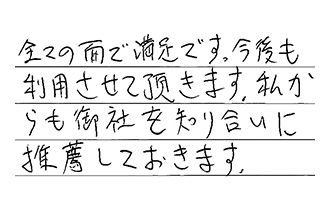 全ての面で満足です。今後も
利用させて頂きます。私か
らも御社を知り合いに
推薦しておきます。